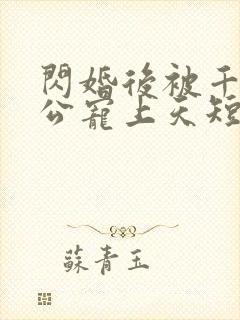 閃婚後被千
公寵上天短
蘇青玉